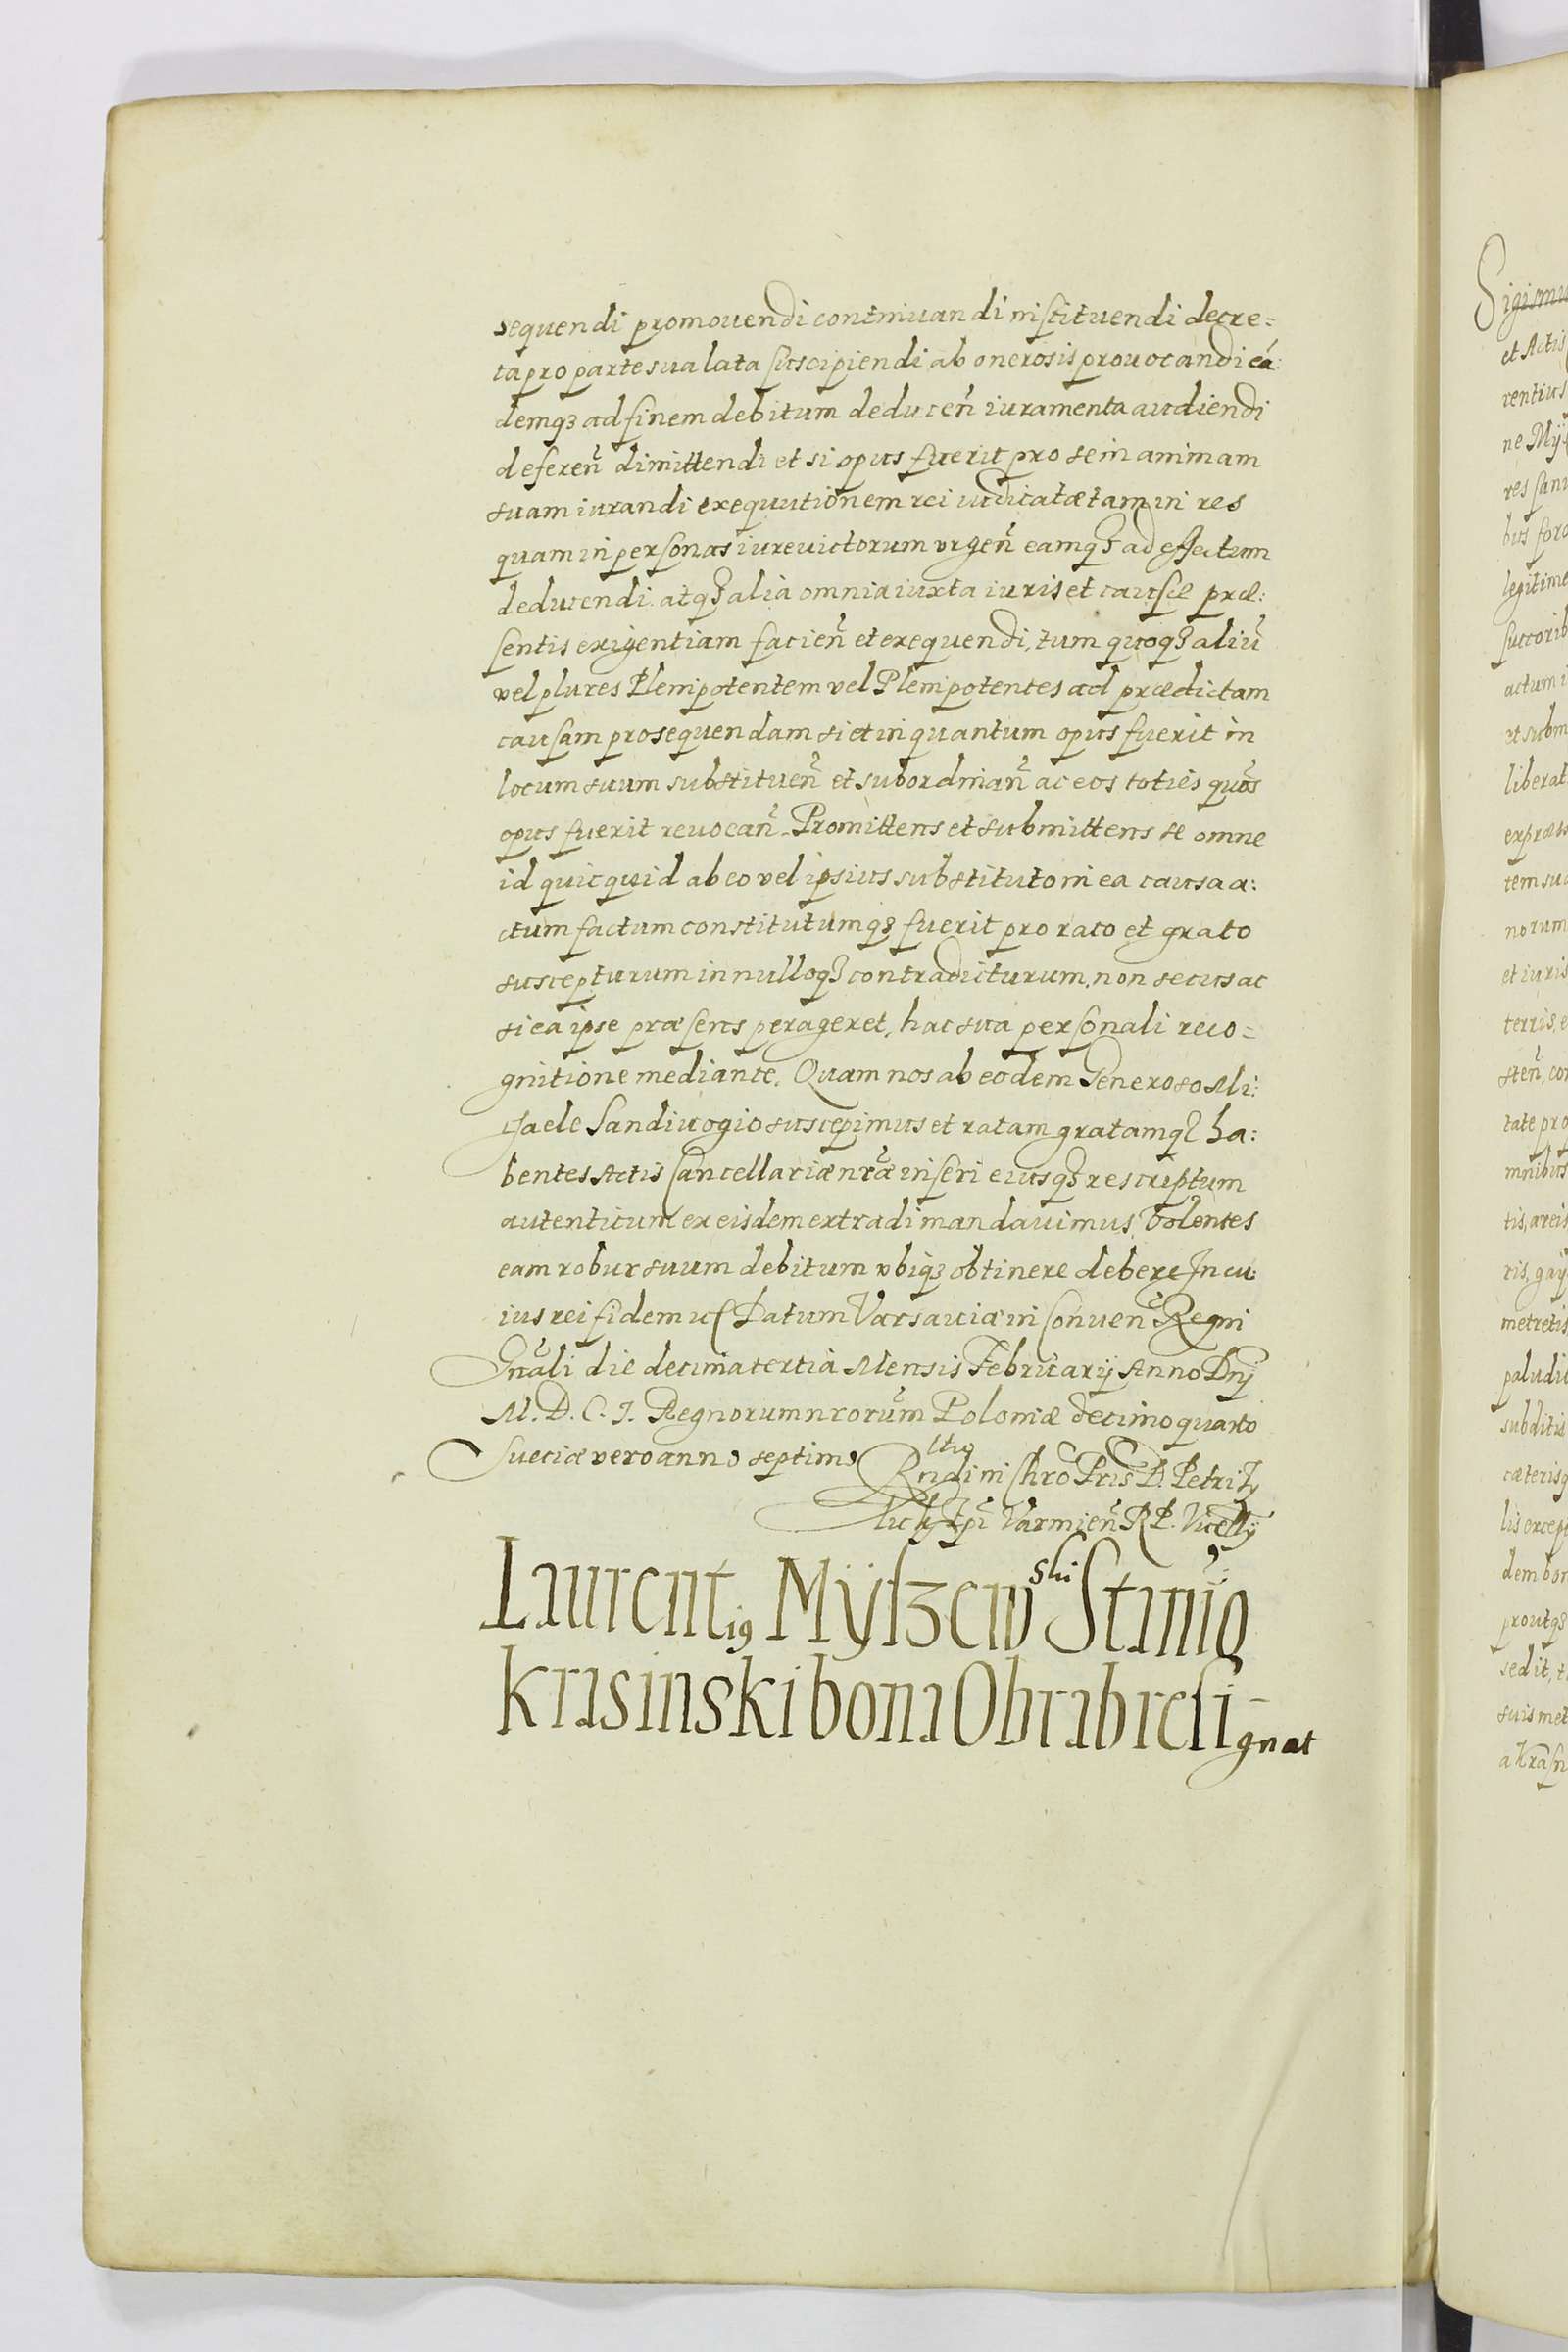 sequendi promouendi continuandi instituendi decre=
ta pro parte sua lata suscipiendi ab onerosis prouocandi eá:
demqȝ ad finem debitum deducen̄ iuramenta audiendi
deferen̄ dimittendi et si opus fuerit pro se in animam
suam iurandi exequutionem rei iudicatæ tam in res
quam in personas iureuictorum vrgen̄ eamqȝ ad effectum
deducendi atqȝ alia omnia iuxta iuris et causæ præ:
sentis exigentiam facien̄ et exequendi, tum quoqȝ aliū
vel plures Plenipotentem vel Plenipotentes ad prædictam
causam prosequendam si et in quantum opus fuerit in
locum suum substituen̄ et subordinan̄ ac eos toties quōs
opus fuerit reuocan̄. Promittens et submittens se omne
id quicquid ab eo vel ipsius substituto in ea causa a:
ctum factum constitutumqȝ fuerit pro rato et grato
suscepturum in nulloqȝ contradicturum, non secus ac
si ea ipse præsens perageret, hac sua personali reco=
gnitione mediante. Quam nos ab eodem Generoso Mi:
chaele Sandiuogio suscepimus et ratam gratamqȝ ha:
bentes Actis Cancellariæ nr̄æ inseri eiusqȝ rescriptum
autenticum ex eisdem extradi mandauimus, Volentes
eam robur suum debitum vbiqȝ obtinere debere In cu:
ius rei fidem Datum Varsauiæ in Conuen̄ Regni
Gn̄ali die decima tertia Mensis Februarij Anno Dn̄j
M. D. C. I. Regnorum nrorum Poloniæ decimo quarto
Sueciæ vero anno septimo
Rndi in Chro Pris D. Petri Ty
licki Epi Varmien̄ R P. Vicecellrij
Laurentiꝰ Myszewski Stiniꝰ
Krasinski bona Obrab resi-
gnat
Sigismu
et Actis
rentius
ne Mÿ
res sani
bus foro
legitime
succorib
actum i
et subm
liberat
ex præs
tem sua
norum
et iuris
terris, e
sten̄, con
tate pro
mnibus
tis, areis
ris, gaÿ
metretis
paludib
subditis
cæterisq
lis except
dem bon
proutqȝ
sedit, t
suis met
a Krasn